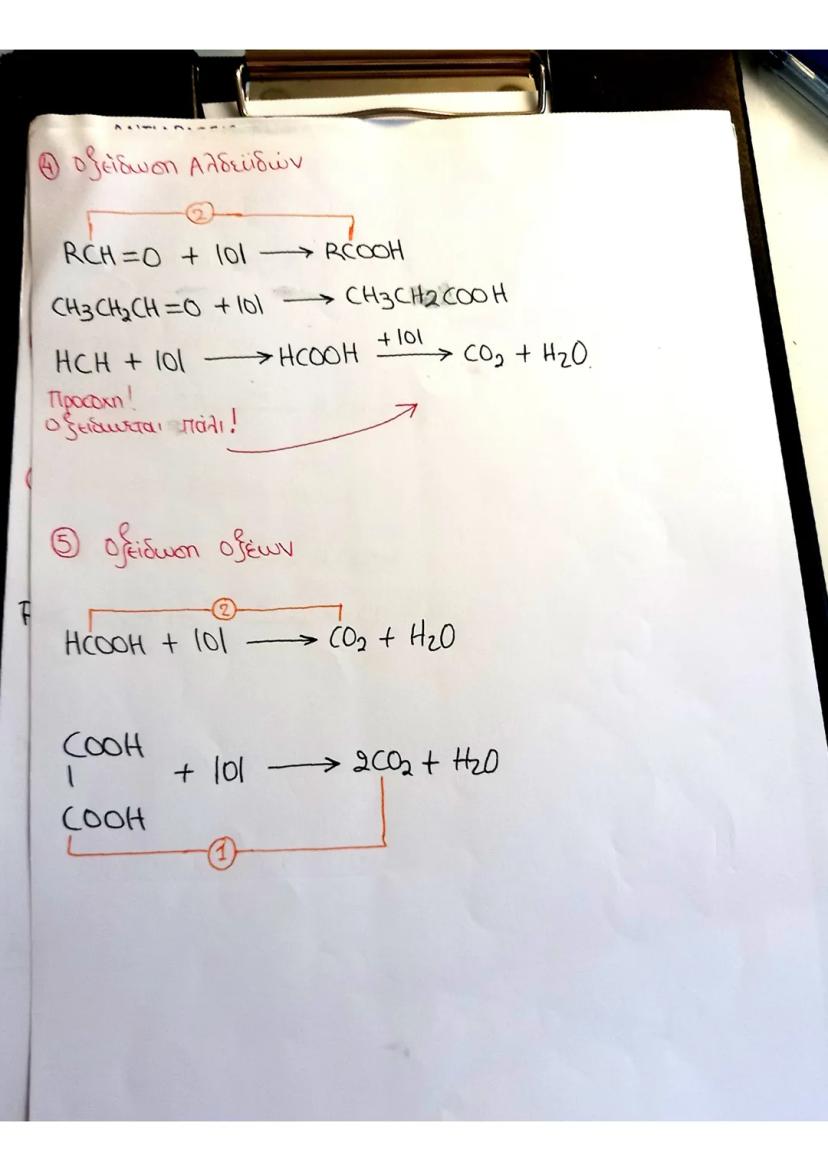 ④ Οξείδωση Αλδεϋδών
②
RCH=O + |O| ⟶ RCOOH
CH3CH2CH=O + |O| ⟶ CH3CH2COOH
HCH + |O| ⟶ HCOOH +|O| ⟶ CO2 + H2O.
Προσοχη!
Οξειδωνεται πάλι!
⑤ Οξείδωση οξέων
②
HCOOH + |O| ⟶ CO2 + H2O
COOH
|
+ |O| ⟶ 2CO2 + H2O
COOH
①